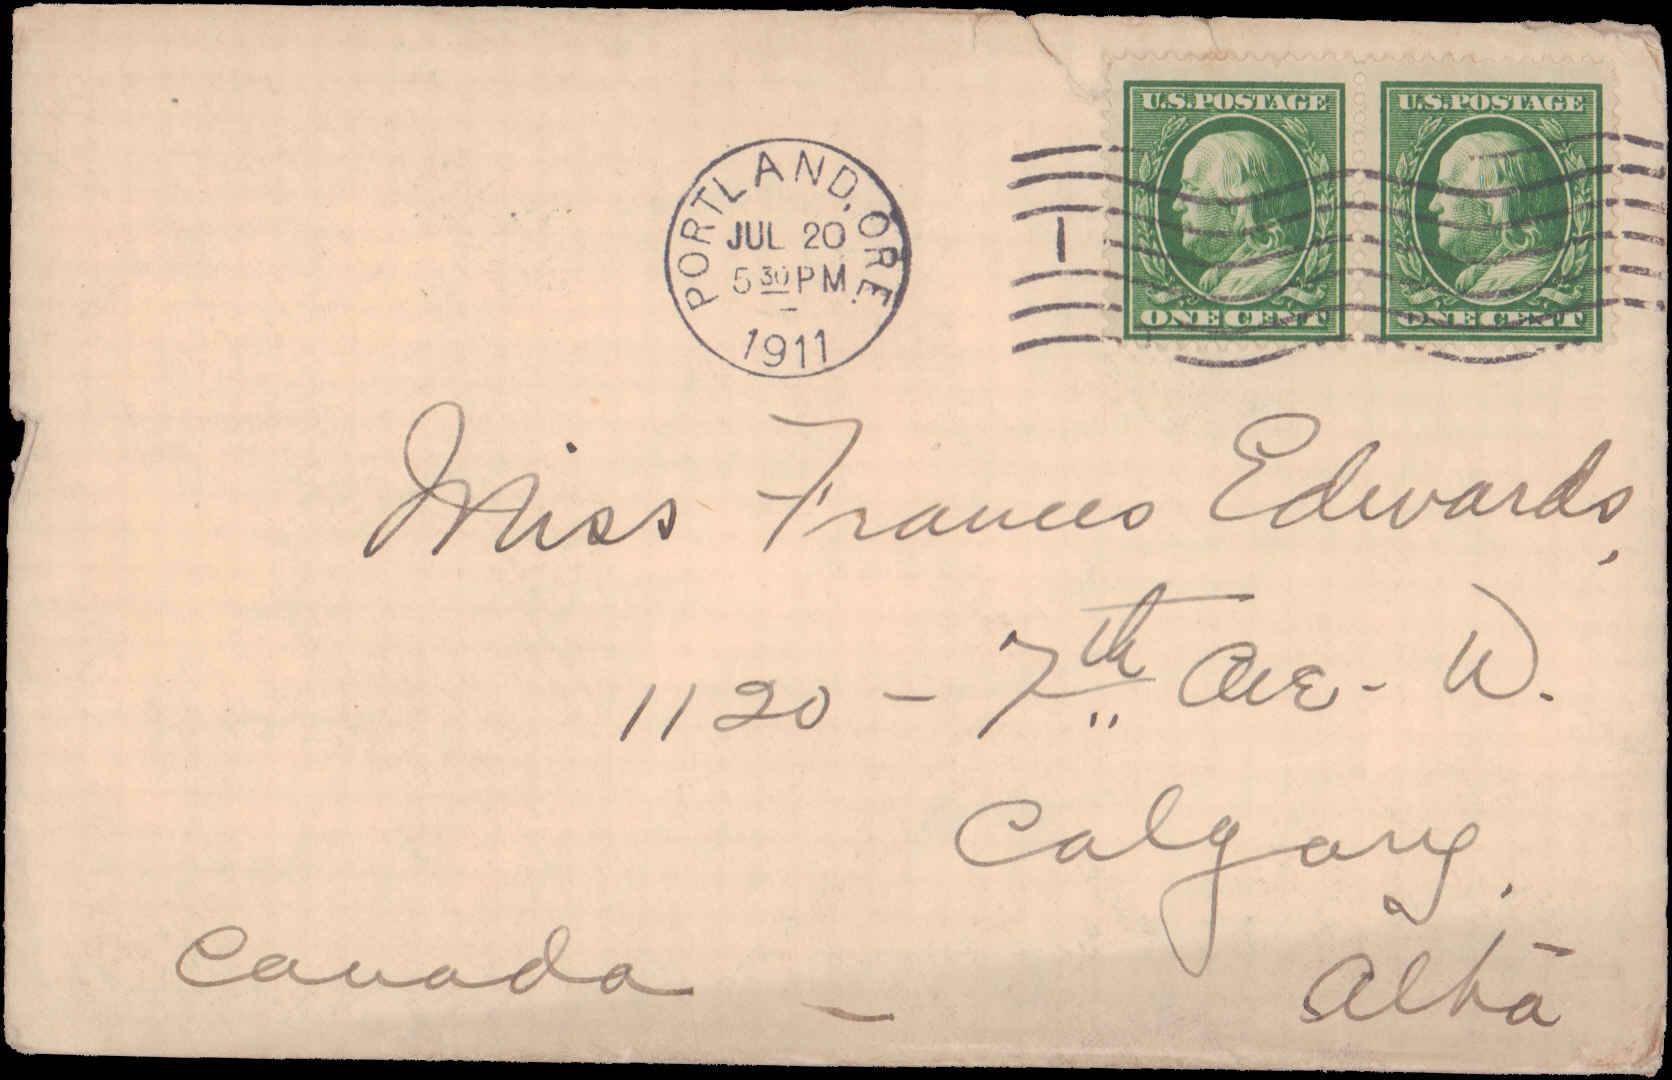 U.S. POSTAGE U.S. POSTAGE
ONE CENT ONE CENT
PORTLAND, ORE.
JUL 20
5 30 PM
1911
1
Miss Frances Edwards,
1120 - 7th Ave - W.
Calgary,
Alta
Canada -